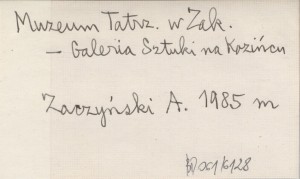 Muzeum Tatrz. w Zak.
– Galeria Sztuki na Kozińcu
Zaczyński A. 1985 m
001/6128